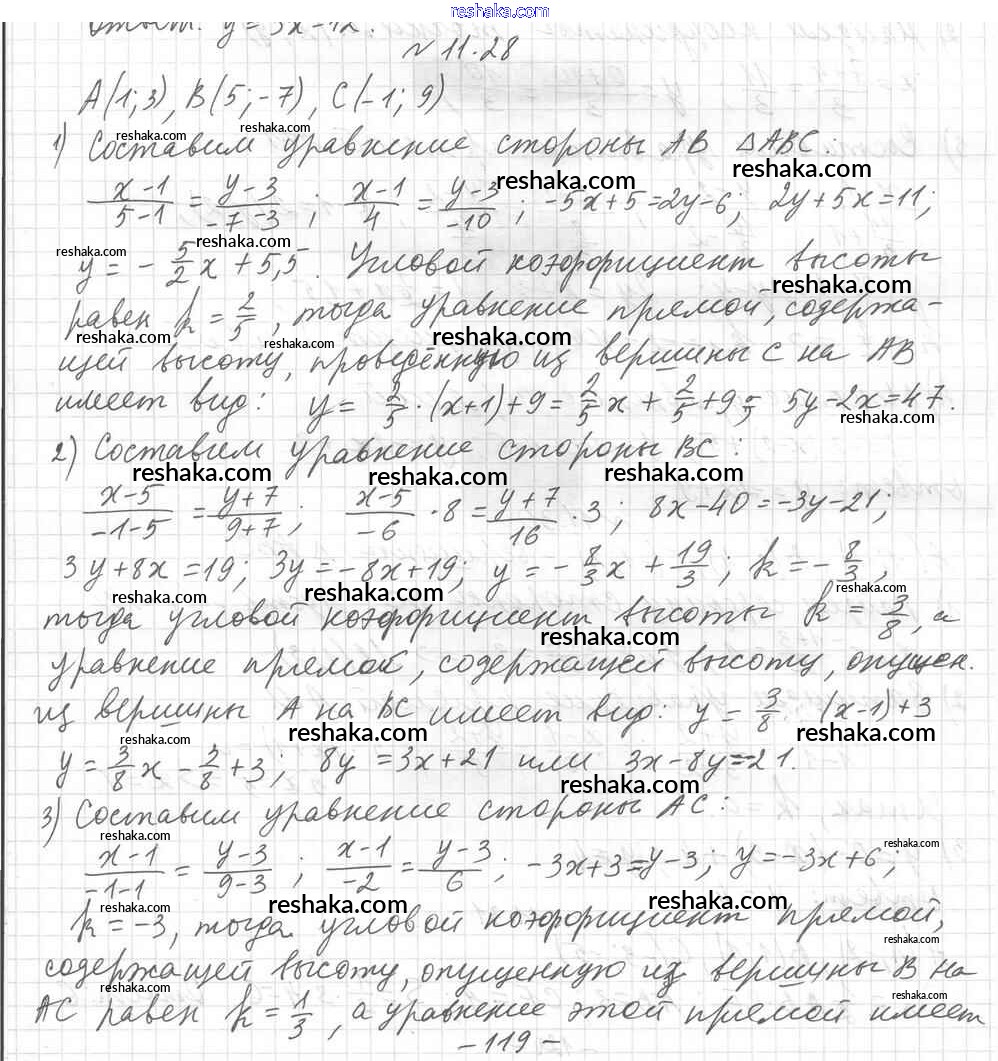 reshaka.com
Ответ: y = 3x - 12.
№ 11.28
A(1; 3), B(5; -7), C(-1; 9)
1) Составим уравнение стороны AB ΔABC:
(x-1)/(5-1) = (y-3)/(-7-3) ; (x-1)/4 = (y-3)/(-10) ; -5x+5=2y-6; 2y+5x=11;
y = - 5/2 x + 5,5. Угловой коэффициент высоты
равен k = 2/5, тогда уравнение прямой, содержа-
щей высоту, проведённую из вершины C на AB
имеет вид: y = 2/5 · (x+1)+9 = 2/5 x + 2/5 + 9; 5y-2x=47.
2) Составим уравнение стороны BC:
(x-5)/(-1-5) = (y+7)/(9+7) ; (x-5)/(-6) · 8 = (y+7)/16 · 3 ; 8x-40=-3y-21;
3y+8x=19; 3y=-8x+19; y = - 8/3 x + 19/3 ; k = - 8/3,
тогда угловой коэффициент высоты k = 3/8, а
уравнение прямой, содержащей высоту, опущен.
из вершины A на BC имеет вид: y = 3/8 (x-1)+3
y = 3/8 x - 3/8 + 3; 8y = 3x+21 или 3x-8y=-21.
3) Составим уравнение стороны AC:
(x-1)/(-1-1) = (y-3)/(9-3) ; (x-1)/(-2) = (y-3)/6 ; -3x+3=y-3; y=-3x+6;
k = -3, тогда угловой коэффициент прямой,
содержащей высоту, опущенную из вершины B на
AC равен k = 1/3, а уравнение этой прямой имеет
- 119 -